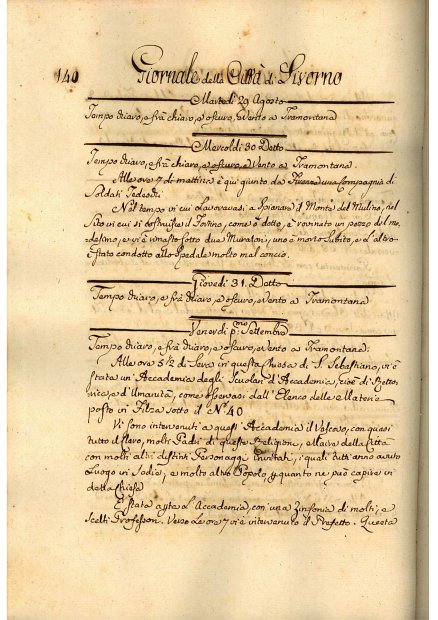 140 Giornale della Città di Livorno
Martedì 29 Agosto
Tempo chiaro, e frà chiaro, e oscuro, e Vento a Tramontana
Mercoldì 30 Detto
Tempo chiaro, e frà chiaro, e oscuro, e Vento a Tramontana.
Alle ore 7 di mattina è qui giunto da Firenze una Compagnia di
Soldati Tedeschi.
Nel tempo vi cui Lavoravasi a Spianare il Monte del Mulino, nel
Sito vi cui si costruisce il Fortino, come è detto, è rovinato un pezzo del me-
desimo, e vi è rimasto sotto due Muratori, uno è morto subito, e l'altro
è stato condotto allo Spedale molto mal concio.
Giovedì 31. Detto
Tempo chiaro, e frà chiaro, e oscuro, e Vento a Tramontana
Venerdì p.mo Settembre
Tempo chiaro, e frà chiaro, e oscuro, e Vento a Tramontana.
Alle ore 5 1/2 di Sera in questa Chiesa di S. Sebastiano, vi è
stata un' Accademia degli Scuolari d'Accademia, cioè di Retto-
rica, e d'Umanità, come osservasi dall' Elenco delle Materie
posto in Filza Sotto il N.° 40
Vi sono intervenuti a questa Accademia il Vescovo, con quasi
tutto il Clero, molti Padri di queste Religioni, ed della Città
con molti altri distinti Personaggi Invitati, i quali tutti anno avuto
Luogo in Sedie, e molto altro Popolo quanto ne può capire in
detta Chiesa
È stata aperta l'Accademia, con una Sinfonia di molti, e
Scelti Professori. Verso le ore 7 vi è intervenuto il Prefetto. Questa